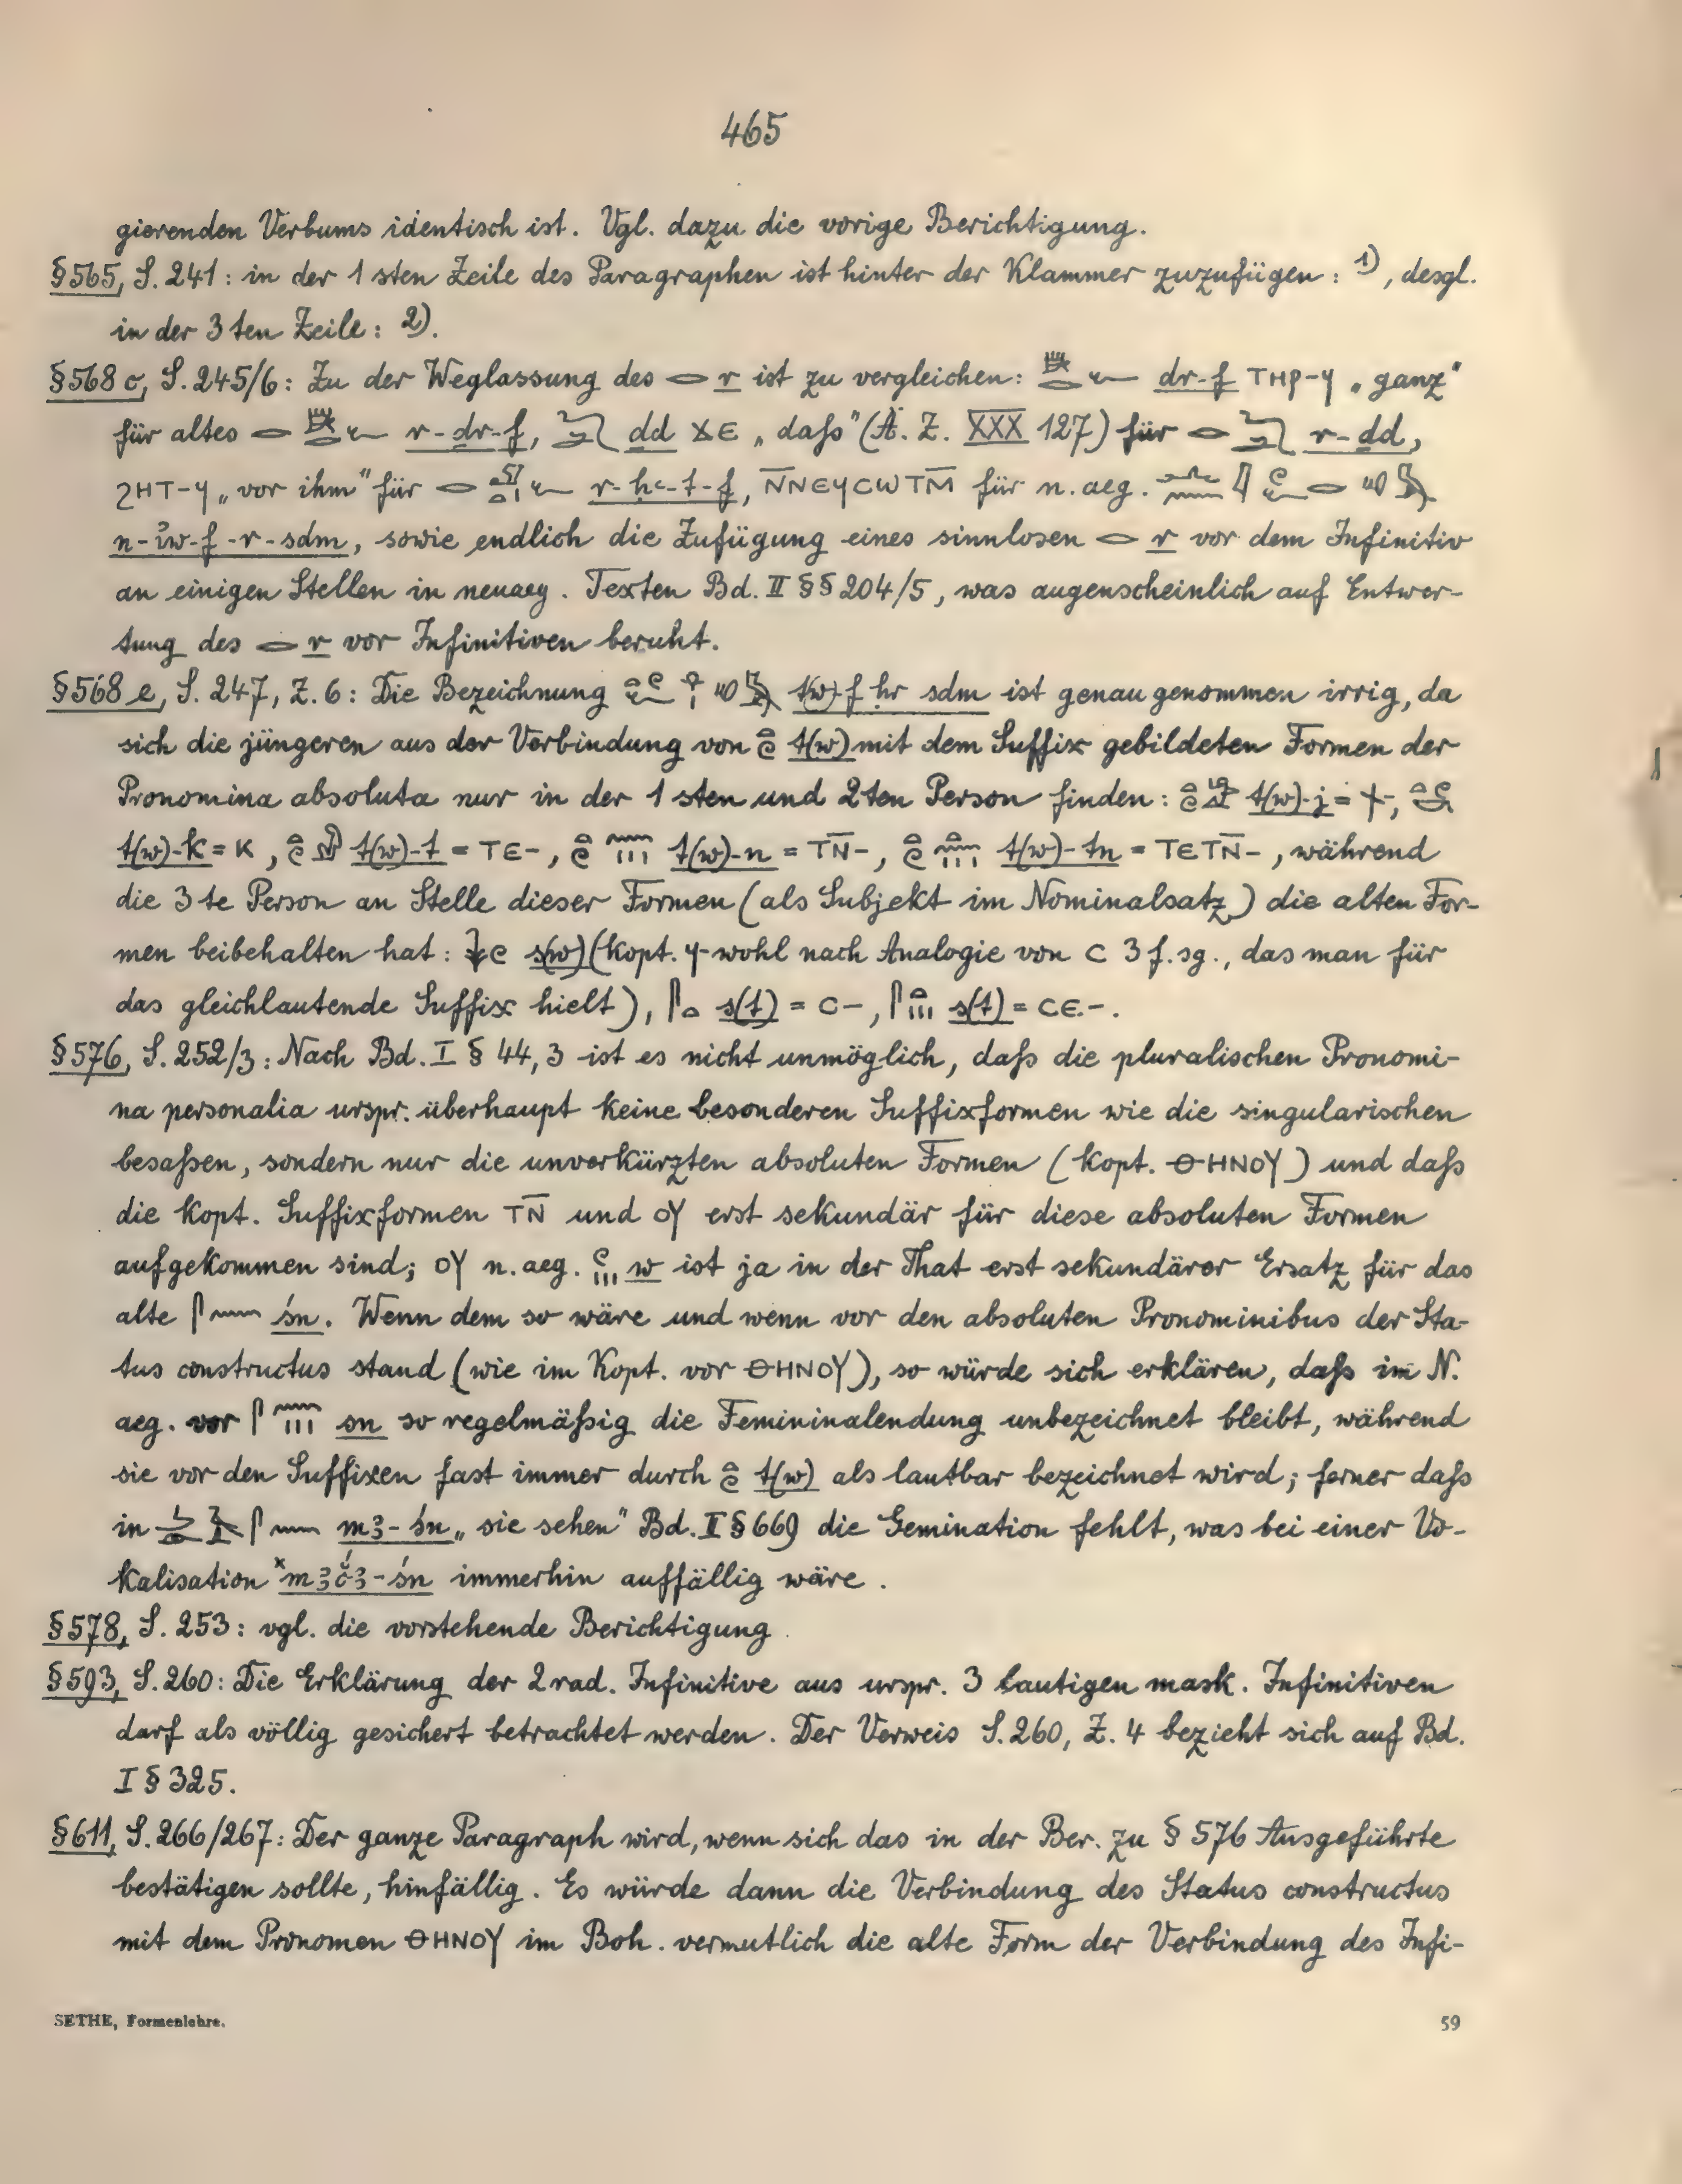 465
gierenden Verbums identisch ist. Vgl. dazu die vorige Berichtigung.
§565, S. 241: in der 1sten Zeile des Paragraphen ist hinter der Klammer zuzufügen: 1), desgl.
in der 3ten Zeile: 2).
§568c, S. 245/6: Zu der Weglassung des 𓂋 r ist zu vergleichen: dr-f ⲦⲎⲢ-ϥ „ganz"
für altes r-dr-f, dd ϪⲈ „daſs" (Ä. Z. XXX 127) für r-dd,
ϨⲎⲦ-ϥ „vor ihm" für r-ḥꜥ-t-f, N̅ⲚⲈϤⲤⲰⲦM̅ für n. aeg.
n-iw-f-r-sdm, sowie endlich die Zufügung eines sinnlosen 𓂋 r vor dem Infinitiv
an einigen Stellen in neuaeg. Texten Bd. II §§ 204/5, was augenscheinlich auf Entwer-
tung des 𓂋 r vor Infinitiven beruht.
§568e, S. 247, Z. 6: Die Bezeichnung t(w)-f ḥr sdm ist genau genommen irrig, da
sich die jüngeren aus der Verbindung von t(w) mit dem Suffix gebildeten Formen der
Pronomina absoluta nur in der 1sten und 2ten Person finden: t(w)-j = ϯ-,
t(w)-k = Ⲕ, t(w)-t = ⲦⲈ-, t(w)-n = ⲦN̅-, t(w)-tn = ⲦⲈⲦN̅-, während
die 3te Person an Stelle dieser Formen (als Subjekt im Nominalsatz) die alten For-
men beibehalten hat: s(w) (kopt. ϥ- wohl nach Analogie von Ⲥ 3 f. sg., das man für
das gleichlautende Suffix hielt), s(t) = Ⲥ-, s(t) = ⲤⲈ-.
§576, S. 252/3: Nach Bd. I § 44, 3 ist es nicht unmöglich, daſs die pluralischen Pronomi-
na personalia urspr. überhaupt keine besonderen Suffixformen wie die singularischen
besaſsen, sondern nur die unverkürzten absoluten Formen (kopt. ⲐⲎⲚⲞⲨ) und daſs
die kopt. Suffixformen ⲦN̅ und ⲞⲨ erst sekundär für diese absoluten Formen
aufgekommen sind; ⲞⲨ n. aeg. w ist ja in der That erst sekundärer Ersatz für das
alte śn. Wenn dem so wäre und wenn vor den absoluten Pronominibus der Sta-
tus constructus stand (wie im Kopt. vor ⲐⲎⲚⲞⲨ), so würde sich erklären, daſs im N.
aeg. vor sn so regelmäſsig die Femininalendung unbezeichnet bleibt, während
sie vor den Suffixen fast immer durch t(w) als lautbar bezeichnet wird; ferner daſs
in mꜣ-śn „sie sehen" Bd. II § 669 die Gemination fehlt, was bei einer Vo-
kalisation immerhin auffällig wäre.
§578, S. 253: vgl. die vorstehende Berichtigung.
§593, S. 260: Die Erklärung der 2rad. Infinitive aus urspr. 3 lautigen mask. Infinitiven
darf als völlig gesichert betrachtet werden. Der Verweis S. 260, Z. 4 bezieht sich auf Bd.
I § 325.
§611, S. 266/267: Der ganze Paragraph wird, wenn sich das in der Ber. zu § 576 Ausgeführte
bestätigen sollte, hinfällig. Es würde dann die Verbindung des Status constructus
mit dem Pronomen ⲐⲎⲚⲞⲨ im Boh. vermutlich die alte Form der Verbindung des Infi-
SETHE, Formenlehre.
59